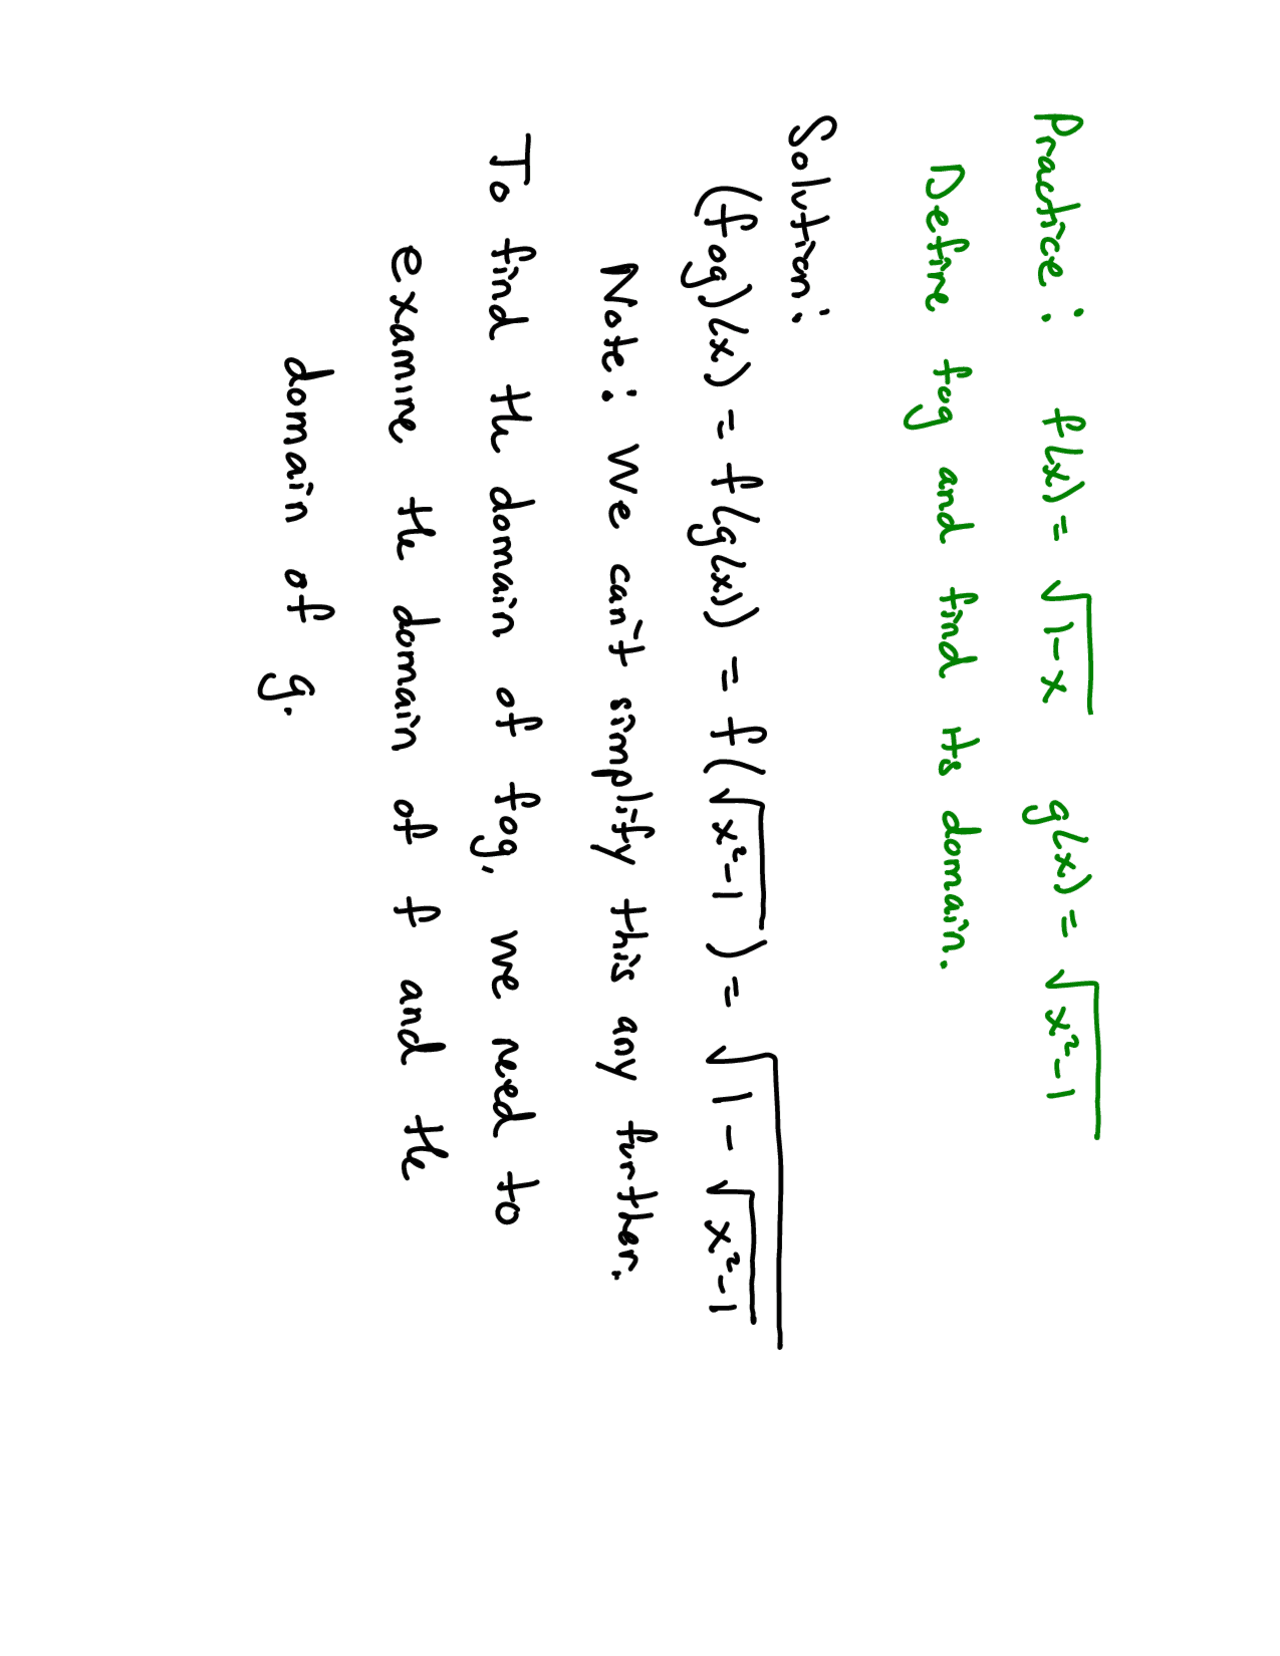 Practice: f(x) = √(1-x) g(x) = √(x²-1)
Define fog and find its domain.
Solution:
(fog)(x) = f(g(x)) = f(√(x²-1)) = √(1 - √(x²-1))
Note: We can't simplify this any further.
To find the domain of fog, we need to
examine the domain of f and the
domain of g.